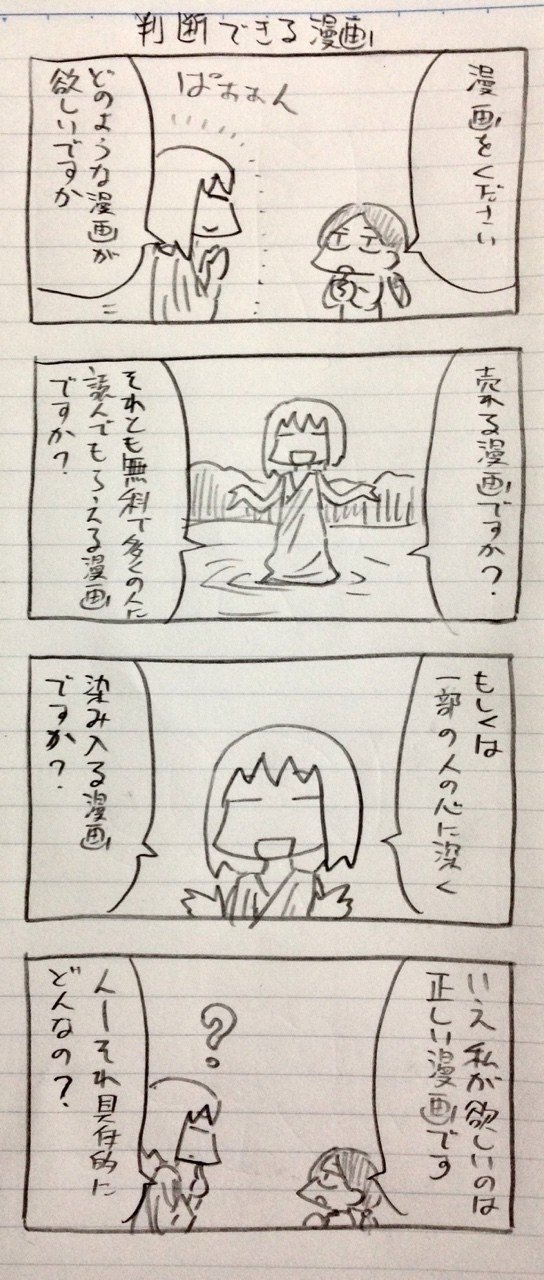 判断できる漫画
漫画をください
ぱぁぁん
どのような漫画が
欲しいですか
売れる漫画ですか？
それとも無料で多くの人に
読んでもらえる漫画
ですか？
もしくは
一部の人の心に深く
染み入る漫画
ですか？
いえ私が欲しいのは
正しい漫画です
?
んーそれ具体的に
どんなの？